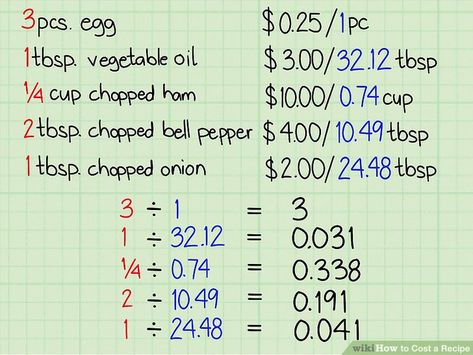 3pcs. egg $0.25/1pc
1tbsp. vegetable oil $3.00/32.12 tbsp
¼ cup chopped ham $10.00/0.74 cup
2tbsp. chopped bell pepper $4.00/10.49 tbsp
1 tbsp. chopped onion $2.00/24.48 tbsp
3 ÷ 1 = 3
1 ÷ 32.12 = 0.031
¼ ÷ 0.74 = 0.338
2 ÷ 10.49 = 0.191
1 ÷ 24.48 = 0.041
wiki How to Cost a Recipe